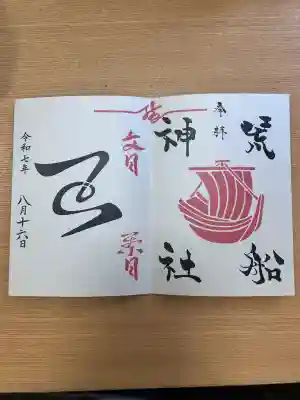 荒船
奉拝
神社
文月
令和七年 八月十六日